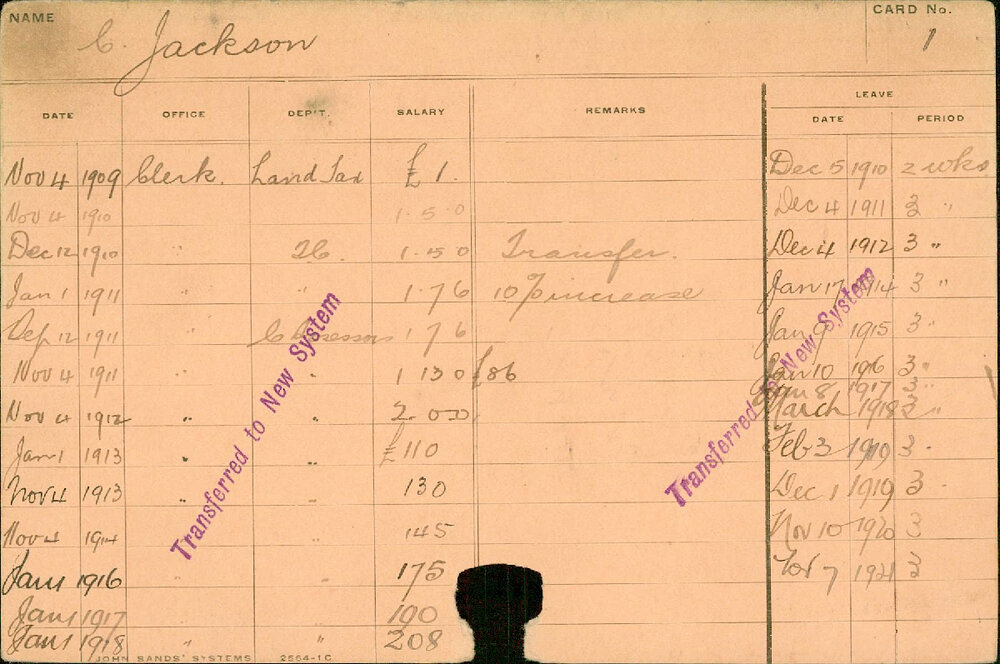 NAME C. Jackson CARD No. 1
DATE OFFICE DEP'T. SALARY REMARKS LEAVE
DATE PERIOD
Nov 4 1909 Clerk. Land Tax £1. Dec 5 1910 2 wks
Nov 4 1910 1.5.0 Dec 4 1911 3 "
Dec 12 1910 " 1.5.0 Transfer. Dec 4 1912 3 "
Jan 1 1911 " " 1.7.6 10% increase Jan 17 1914 3 "
Sep 12 1911 1 7 6 Jan 1915 3 "
Nov 4 1911 " 1 13 0 £86 Jan 10 1916 3 "
Jan 8 1917 3 "
Nov 4 1912 " " 2.0.0 March 1918 3 "
Jan 1 1913 " " £110 Feb 3 1919 3 "
Nov 4 1913 " " 130 Dec 1 1919 3 "
Nov 4 1914 " " 145 Nov 10 1920 3
Jan 1 1916 " " 175 Nov 7 1921 3
Jan 1 1917 190
Jan 1 1918 " " 208
Transferred to New System
Transferred to New System
JOHN SANDS' SYSTEMS 2564-1C